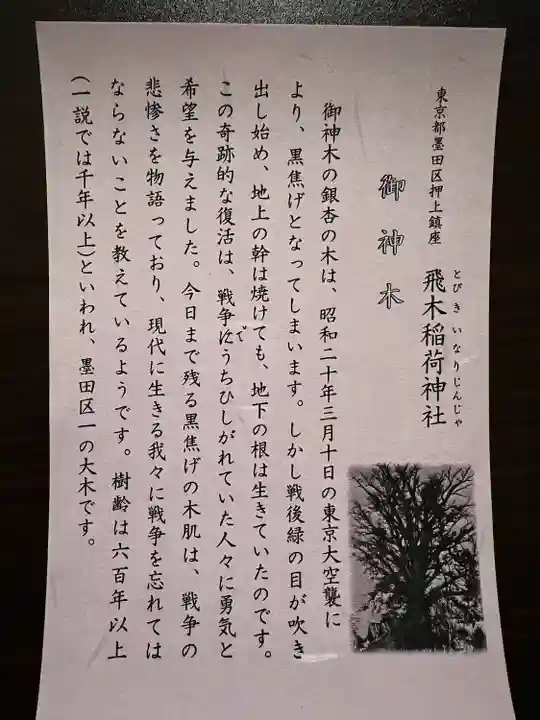 東京都墨田区押上鎮座
飛木稲荷神社
とびきいなりじんじゃ
御神木
御神木の銀杏の木は、昭和二十年三月十日の東京大空襲に
より、黒焦げとなってしまいます。しかし戦後緑の目が吹き
出し始め、地上の幹は焼けても、地下の根は生きていたのです。
この奇跡的な復活は、戦争にうちひしがれていた人々に勇気と
で
希望を与えました。今日まで残る黒焦げの木肌は、戦争の
悲惨さを物語っており、現代に生きる我々に戦争を忘れては
ならないことを教えているようです。樹齢は六百年以上
(一説では千年以上)といわれ、墨田区一の大木です。